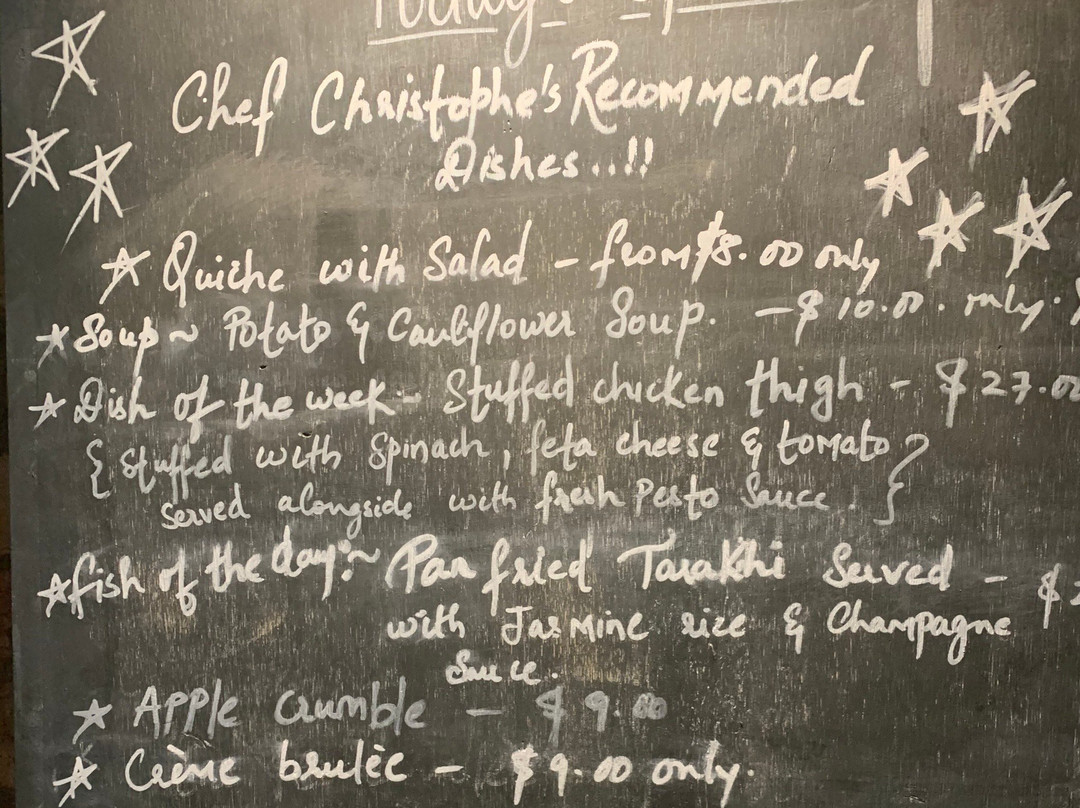 Today's
Chef Christophe's Recommended
Dishes..!!
Quiche with Salad - from $8.00 only
Soup ~ Potato & Cauliflower Soup. - $10.00. only.
Dish of the week:- Stuffed chicken thigh - $27.00
{ Stuffed with Spinach, feta cheese & tomato
served alongside with fresh Pesto Sauce. }
fish of the day:~ Pan fried Tarakhi Served - $
with Jasmine rice & Champagne
Sauce.
Apple crumble - $9.00
Crème brulèe - $9.00 only.